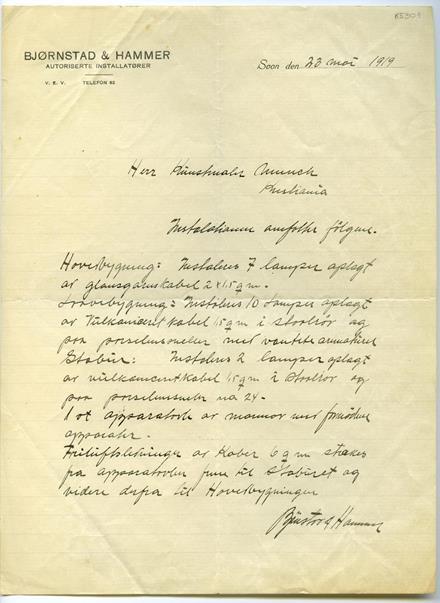 BJØRNSTAD & HAMMER
AUTORISERTE INSTALLATØRER
V. E. V. TELEFON 82
Soon den 23 mai 1919
Herr Kunstmaler Munck
Kristiania
Instalationen omfatter følgene.
Hovedbygning: Instaleres 7 lamper oplagt
av glansgarnskabel 2 x 1,5 q m.
bygning: Instaleres 10 Lamper oplagt
av Vulkaniceret kabel 1,5 q m i Staalrör og
paa porselensneller med vandtite armaturer
Stabur: Instaleres 2 lamper oplagt
av vulkaniceretkabel 1,5 q m i Staalrör og
paa 24-
1 st apparattavle av marmor med fornödne
apparater.
Friluftsledninger av Kober 6 q m strækes
fra apparattavlen frem til Staburet og
videre derfra til Hovedbygningen
Björnstad Hammer